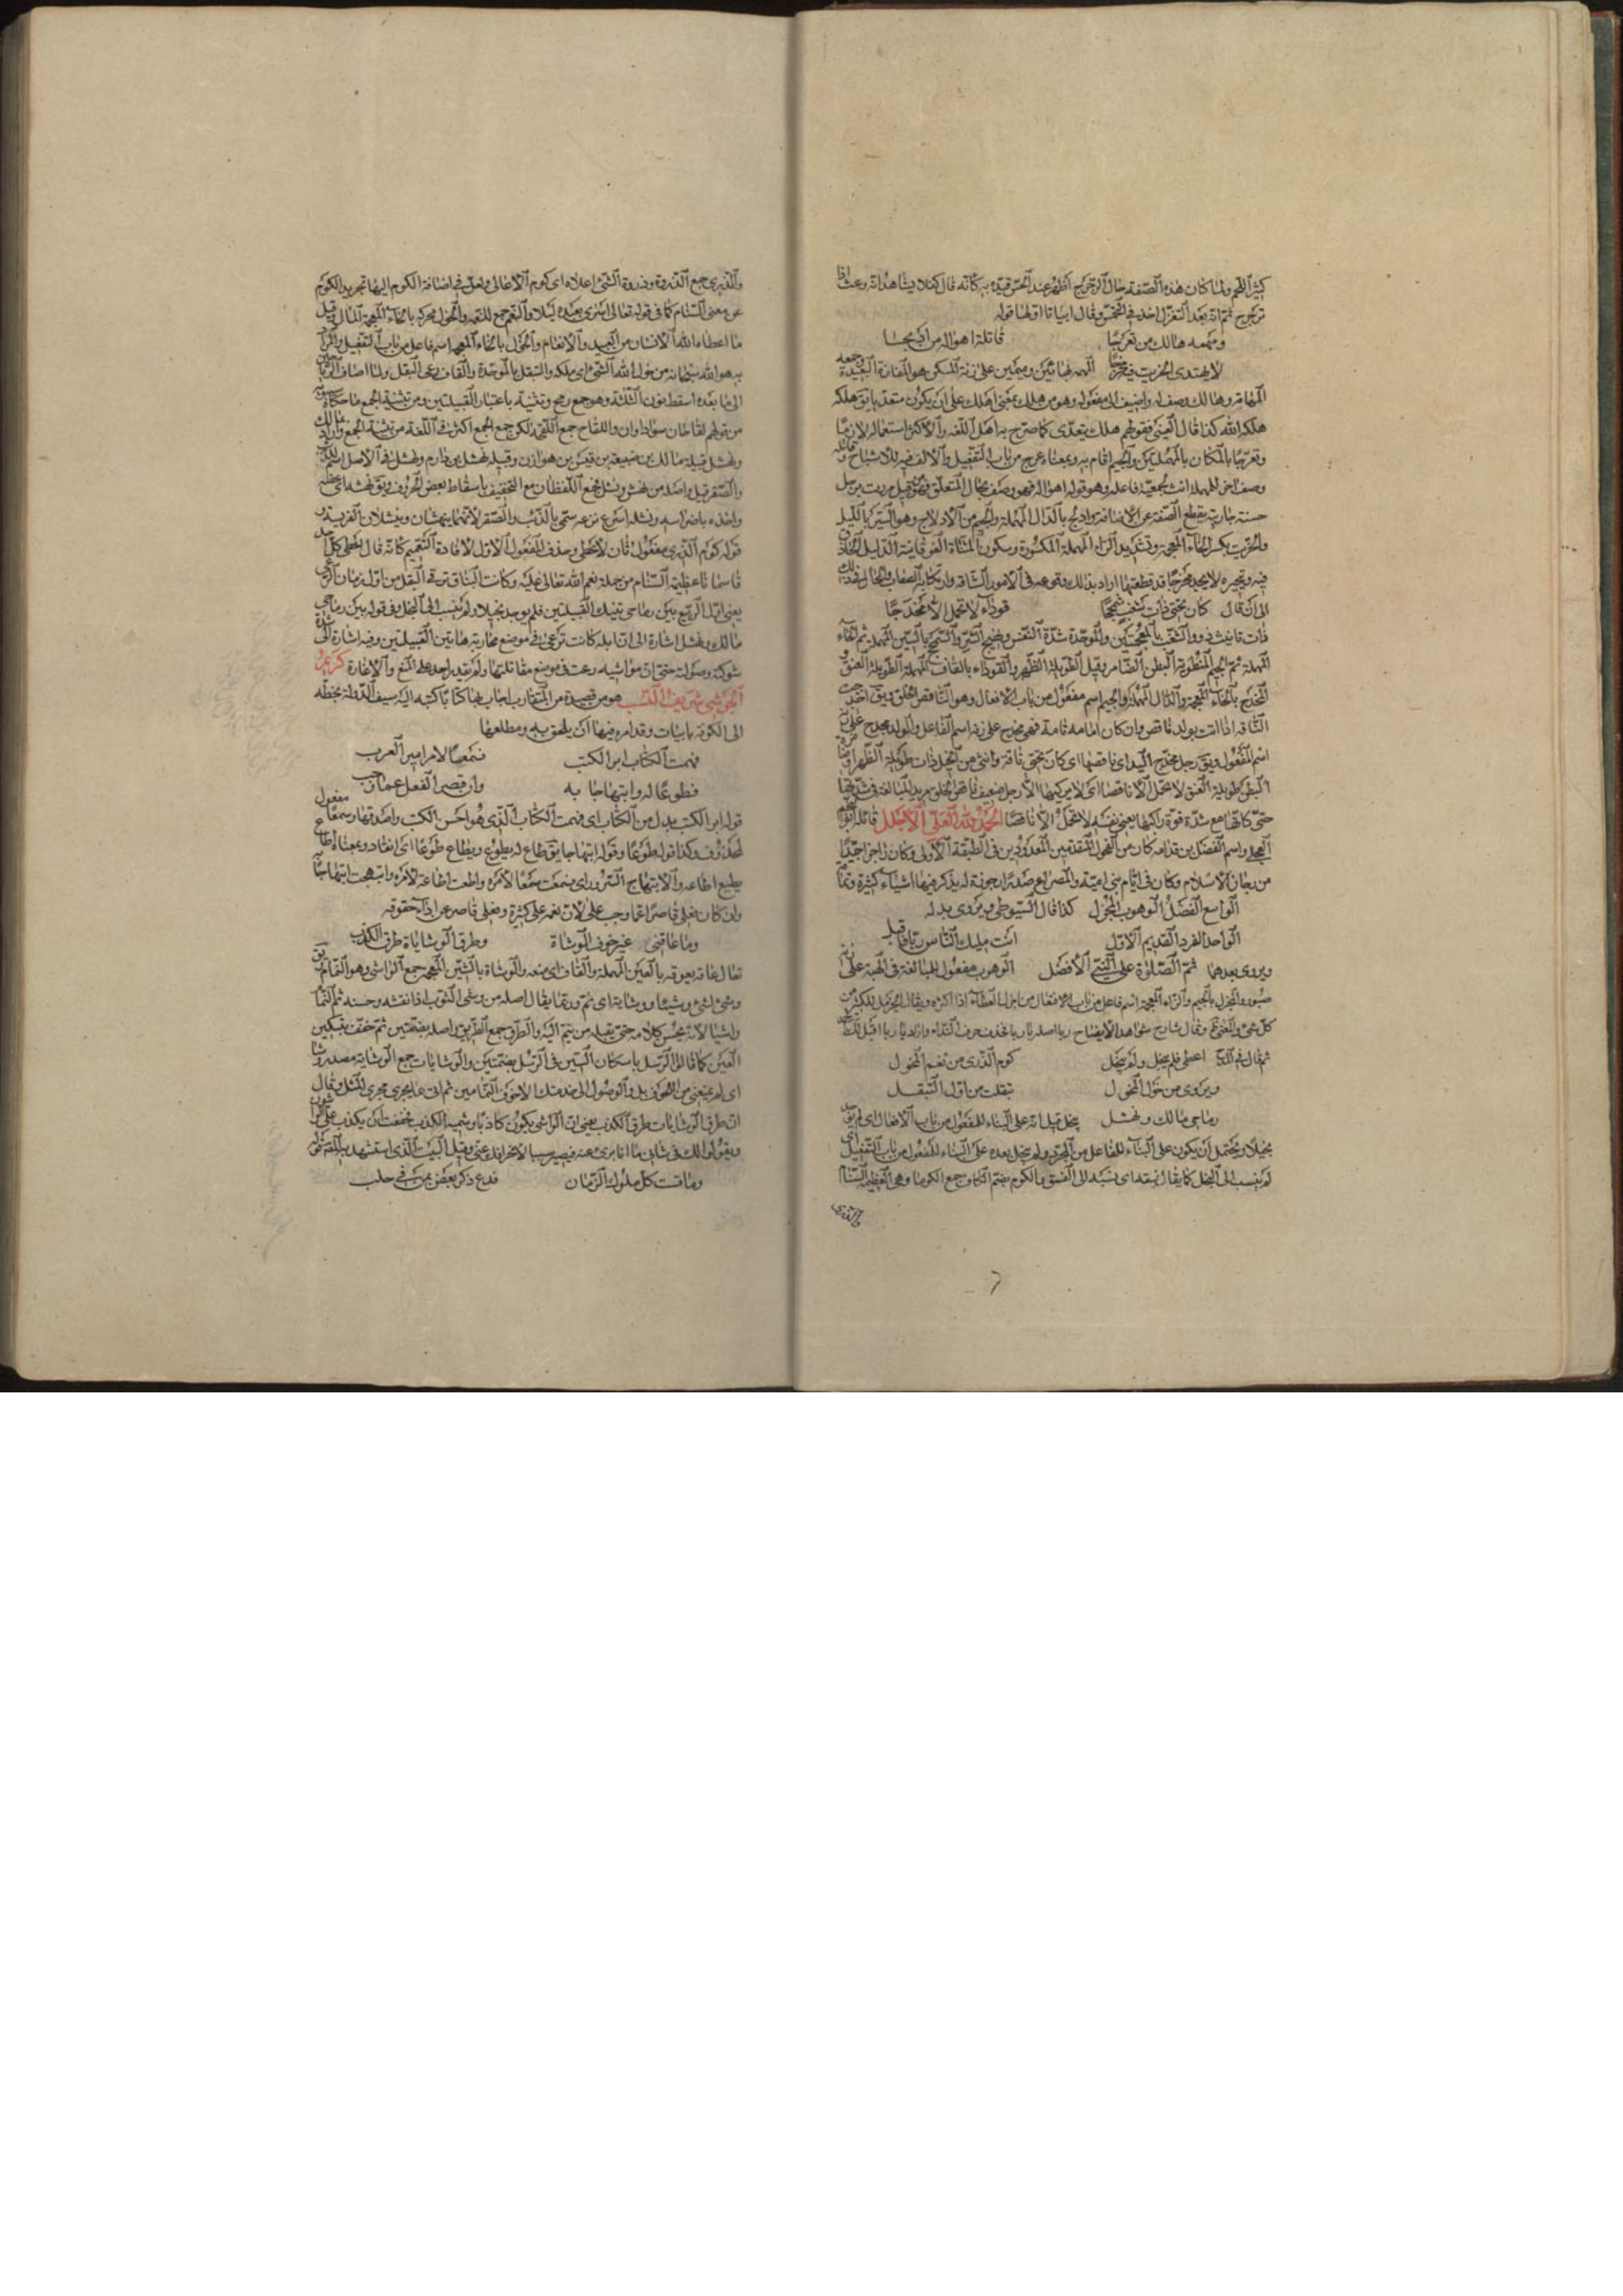 كثير اللحم ولما كان هذه الصفة حال الترجرج اظهر عند الحس قيده به كانه قال كفلا يشاهد انه وعث اذا
ترجرج ثم انه بعد التغزل اخذ في التخمس وقال ابياتا اولها قوله
ومهمه هالك من تعرجا قاتلة اهواله من ادلجا
لا يهتدى الخريت فيه مخرجا المهمه بفتحتين وميمين على زنة المسكن هو المفازة البعيدة وجمعه
المهامه وهالك وصف له واضيف الى مفعوله وهو من هلك بمعنى اهلك على ان يكون متعديا يق هلكه
هلكه الله كذا قال العينى فقولهم هلك يتعدى كما صرح به اهل اللغه والاكثر استعماله لازما
وتعرجا بالمكان بالمهملتين والجيم اقام به وبمعناه عرج من باب التفعيل والالف فيه للاشباع وقاتلة
وصف اخر للمهمه انث لجمعية فاعله وهو قوله اهواله فهو وصف بحال المتعلق فهو كقولك مررت برجل
حسنة جاريته بقطع الصفة عن الاضافة وادلج بالدال المهملة والجيم من الادلاج وهو السير بالليل
والخريت بكسر الخاء المعجمة وتشديد الراء المهملة المكسورة وسكون المثناة الفوقانية الدليل الحاذق
الى ان قال كان تحتى ذات شغب سمحجا قوداء لا تحمل الا مخدجا
ذات تانيث ذو والشغب بالمعجمتين والموحدة شدة النفس وتهييج الشر والسمحج بالسين المهملة ثم الحاء
المهملة ثم الجيم المنطوية البطن الضامر وقيل الطويلة الظهر والقوداء بالقاف المهملة الطويلة العنق و
المخدج بالخاء المعجمة والدال المهملة والجيم اسم مفعول من باب الافعال وهو الناقص الخلق ويق اخدجت
الناقة اذا اتت بولد ناقص وان كان ايامه تامة فهى مخدج على زنة اسم الفاعل والولد مخدج على زنة
اسم المفعول ويق رجل مخدج اليد اى ناقصها اى كان تحتى ناقة وانثى من الخيل ذات طويلة الظهر او ضامرة
البطن طويلة العنق لا تحمل الا ناقصا اى لا يركبها الا رجل ضعيف ناقص الخلق يريد المبالغة في شدتها
حتى كانها مع شدة قوة راكبها يعنى نفسه لا تحمل الا ناقصا الحمد لله العلى الاجلل قائله ابو النجم
العجلى واسم الفضل بن قدامه كان من الفحول المتقدمين المعدودين في الطبقة الاولى وكان راجزا جيدا
من رجاز الاسلام وكان في ايام بنى امية والمصراع صدر ارجوزة له يذكر فيها اشياء كثيرة وتمامه
الواسع الفضل الوهوب المجزل كذا قال السيوطى ويروى بدله
الواحد الفرد القديم الاول انت مليك الناس ربا فاقبل
ويروى بعدهما ثم الصلوة على النبى الافضل الوهوب مفعول للمبالغة في الهبة على زنة
صبور والمجزل بالجيم والزاء المعجمة اسم فاعل من باب الافعال من اجزل العطاء اذا اكثره ويقال الجزيل للكثير من
كل شئ والمعنى ثم وقال شارح شواهد الايضاح ربا اصله يا ربا فحذف حرف النداء واراد يا ربا اقبل
ثم قال في المدح اعطى فلم يبخل ولم يبخل كوم الذرى من نعم المخول
ويروى من خول المخول تبقلت من اول التبقل
رماحى مالك ونهشل يبخل قيل انه على البناء للمفعول من باب الافعال اى لم يوجد
بخيلا ويحتمل ان يكون على البناء للفاعل من المجرد ولم يبخل بعده على البناء للمفعول من باب التفعيل اى
لم ينسب الى البخل كما يقال فسقه اى نسبه الى الفسق والكوم بضم الكاف جمع الكوماء وهى العظيمة السنام
والذرى
والذرى جمع الذروة وذروة الشئ اعلاه اى كوم الاعالى ولعل في اضافة الكوم اليها تجريد الكوم
عن معنى السنام كما في قوله تعالى اسرى بعبده ليلا والنعم جمع للنعمه والخول محركه بالخاء المعجمة المال وقيل
ما اعطاه الله الانسان من العبيد والانعام والمخول بالخاء المعجمه اسم فاعل من باب التفعيل والمراد
به هو الله سبحانه من خوله الله الشئ اى ملكه والتبقل بالموحدة والقاف رعى البقل ولما اضاف الرماحين
الى ما بعده اسقط نون التثنية وهو جمع رمح وتثنيته باعتبار القبيلتين ومن تثنية الجمع ما حكاه سيبويه
من قولهم لقاحان سوداوان واللقاح جمع اللقحة لكن جمع الجمع اكثر في اللغة من تثنية الجمع واراد بمالك
ونهشل قبيلة مالك بن ضبيعة بن قيس بن هوازن وقبيلة نهشل بن دارم ونهشل في الاصل اسم للذئب
والصقر قيل واصله من نهش ونشل فجمع اللفظان مع التخفيف باسقاط بعض الحروف ويق نهشه اى عضه
واخذه باضراسه ونشله اسرع نزعه سمى به الذئب والصقر لانهما ينهشان وينشلان الفريسة و
قوله كوم الذرى مفعول ثان لاعطى وحذف المفعول الاول لافادة التعميم كانه قال اعطى كل احد
ناسا ما عظيمة السنام من جملة نعم الله تعالى عليه وكانت النياق ترعى البقل من اول زمان الرعى
يعنى اول الربيع بين رماحى تينك القبيلتين فلم يوجد بخيلا ولم ينسب الى البخل وفي قوله بين رماحى
مالك ونهشل اشارة الى ان ابله كانت ترعى في موضع محاربة هاتين القبيلتين وفيه اشارة الى شدة
شوكته وصولته حتى ان مواشيه رعت في موضع مقاتلتها ولم يقدر احد على المنع والاغارة كريم
الجرشى شريف النسب هو من قصيدة من المتقارب اجاب بها كتابا كتبه اليه سيف الدولة بخطه
الى الكوفة بابيات وقد امره فيها ان يلحق به ومطلعها
فهمت الكتاب ابر الكتب فسمعا لامر امير العرب
فطوعا له وابتهاجا به وان قصر الفعل عما وجب
قوله ابر الكتب بدل من الكتاب اى فهمت الكتاب الذى هو احسن الكتب واصدقها وسمعا مفعول
لمحذوف وكذا قوله طوعا وقوله ابتهاجا يق طاع له يطوع ويطاع طوعا اى انقاد وبمعناه اطاع
يطيع اطاعه والابتهاج السرور اى فسمعت سمعا لامره واطعت اطاعة لامره وابتهجت ابتهاجا به
وان كان فعلى قاصرا عما وجب على لان نعمه على كثيرة وفعلى قاصر عن اداء حقوقه
وما عاقنى غير خوف الوشاة وطرق الوشايات طرق الكذب
تعال عاقه يعوقه بالعين المهملة والقاف اى منعه والوشاة بالشين المعجمه جمع الواشى وهو النمام يق
وشى الشئ وشيا ووشاية اى نم ورتما يقال اصله من وشى الثوب اذا نقشه وحسنه ثم النمام
واشيا لانه يحسن كلامه حتى يقبله من ينم اليه والطرق جمع الطريق واصله بضمتين ثم خفف بتسكين
العين كما قالوا الرسل باسكان السين في الرسل بضمتين والوشايات جمع الوشاية مصدر وشا
اى لم يمنعنى من اللحوق به والوصول الى خدمتك الا خوف النمامين ثم اتى بما يجرى مجرى المثل وقال
ان طرق الوشايات طرق الكذب يعنى ان الواشى يكون كاذبا وشيمته الكذب فخفت ان يكذب على الواشون
ويقولوا لك في شانى ما انا برئ منه فيصير سببا لانحرافك عنى وقبل البيت الذى استشهد به المص قوله
وما قست كل ملوك الزمان فدع ذكر بعض بمن في حلب